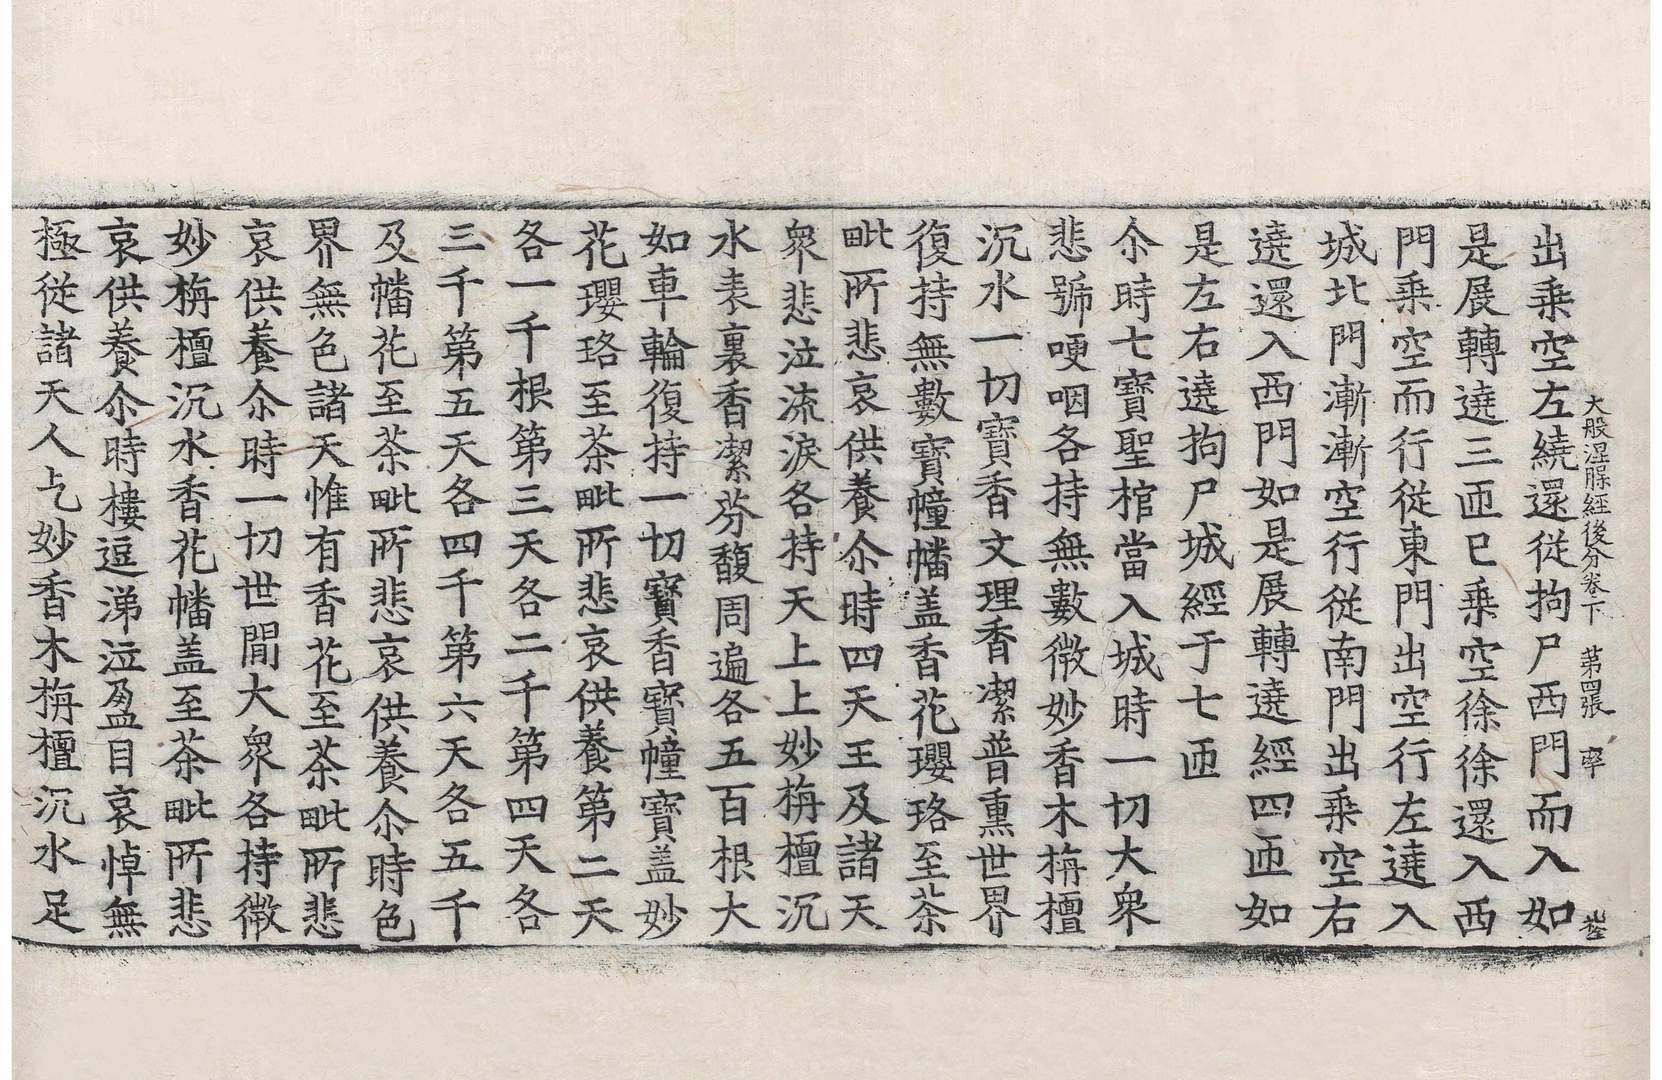 大般涅槃經後分卷下 第四張 率
出乘空左繞還從拘尸西門而入如
是展轉遶三匝已乘空徐徐還入西
門乘空而行從東門出空行左遶入
城北門漸漸空行從南門出乘空右
遶還入西門如是展轉遶經四匝如
是左右遶拘尸城經于七匝
尒時七寶聖棺當入城時一切大衆
悲號哽咽各持無數微妙香木栴檀
沉水一切寶香文理香潔普熏世界
復持無數寶幢幡盖香花瓔珞至茶
毗所悲哀供養尒時四天王及諸天
衆悲泣流淚各持天上上妙栴檀沉
水表裏香潔芬馥周遍各五百根大
如車輪復持一切寶香寶幢寶盖妙
花瓔珞至茶毗所悲哀供養第二天
各一千根第三天各二千第四天各
三千第五天各四千第六天各五千
及幡花至茶毗所悲哀供養尒時色
界無色諸天惟有香花至茶毗所悲
哀供養尒時一切世間大衆各持微
妙栴檀沉水香花幡盖至茶毗所悲
哀供養尒時樓逗涕泣盈目哀悼無
極從諸天人乞妙香木栴檀沉水足